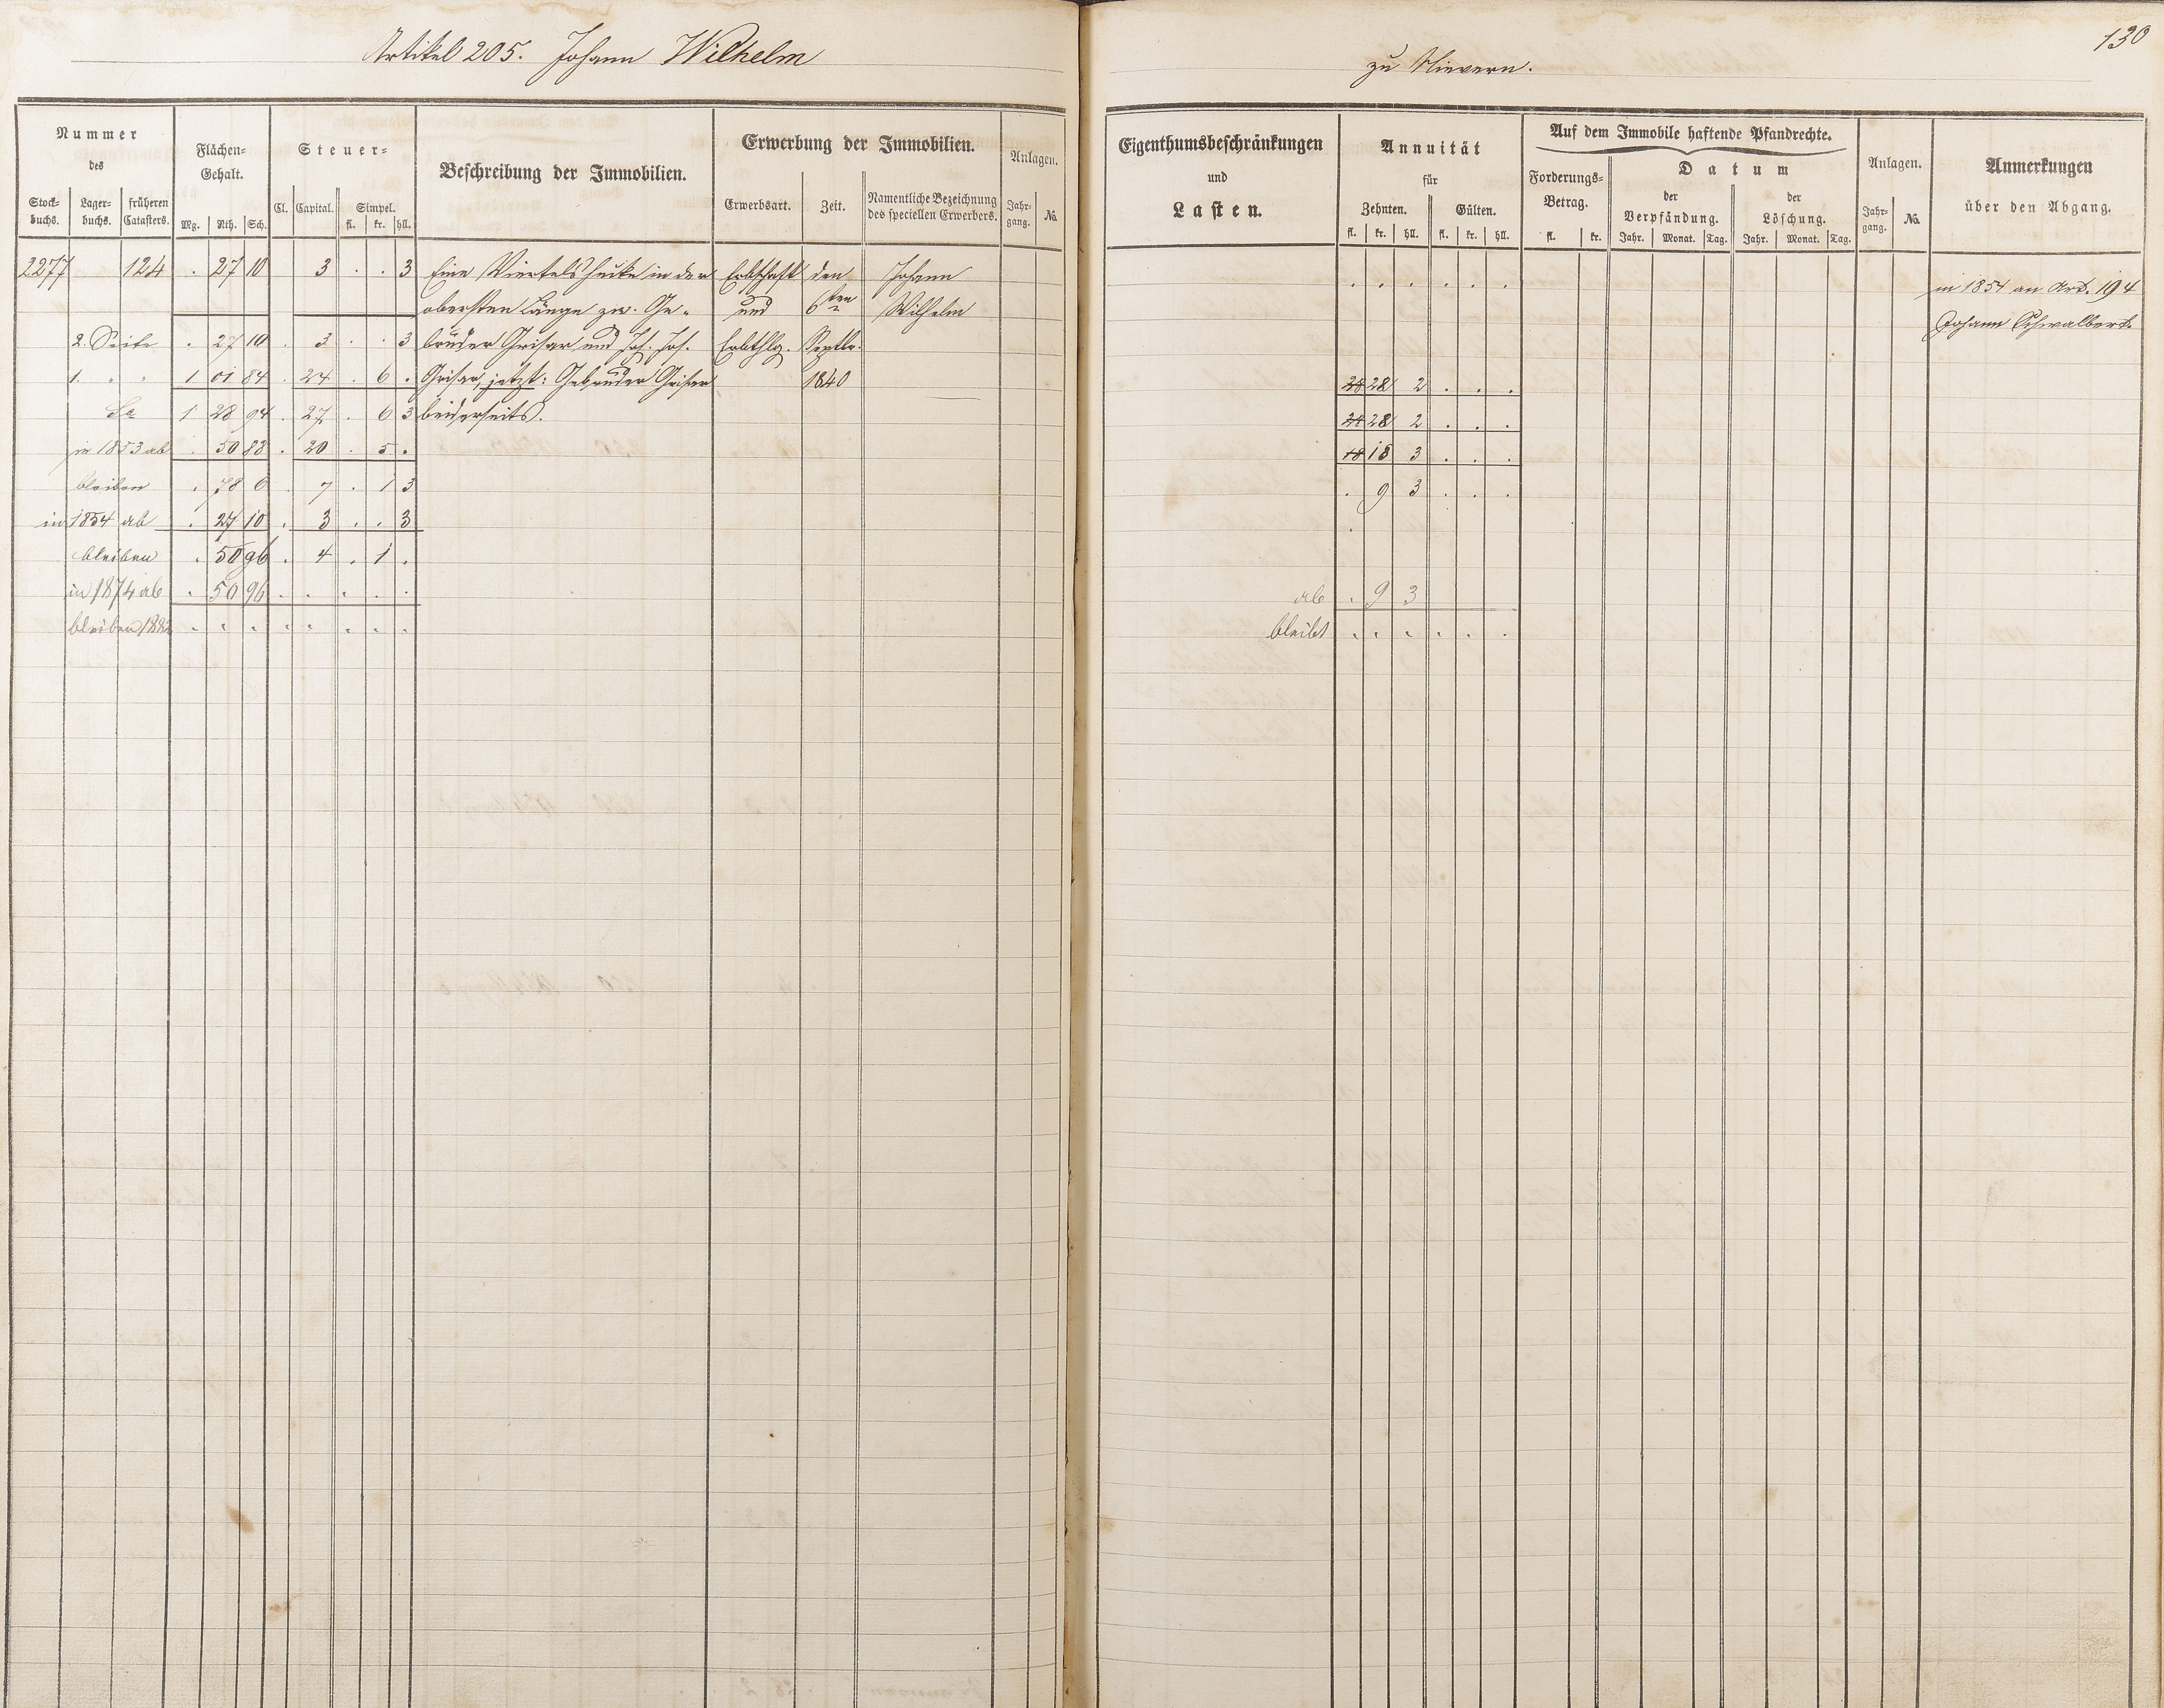 Artikel 205. Johann Wilhelm
zu Nievern.
130
Nummer
des
Stock-
buchs.
Lager-
buchs.
früheren
Catasters.
Flächen-
Gehalt.
Mg. Rth. Sch.
Steuer-
Cl. Capital. Simpel.
fl. kr. hll.
Beschreibung der Immobilien.
Erwerbung der Immobilien.
Erwerbsart. Zeit.
Namentliche Bezeichnung
des speciellen Erwerbers.
Anlagen.
Jahr-
gang.
No.
Eigenthumsbeschränkungen
und
Lasten.
Annuität
für
Zehnten. Gülten.
fl. kr. hll. fl. kr. hll.
Auf dem Immobile haftende Pfandrechte.
Forderungs-
Betrag.
fl. kr.
Datum
der
Verpfändung.
Jahr. Monat. Tag.
der
Löschung.
Jahr. Monat. Tag.
Anlagen.
Jahr-
gang.
No.
Anmerkungen
über den Abgang.
2277 124 . 27 10 3 . . 3 Eine Viertelshecke in der Erbschaft den Johann
. . . . . . in 1854 an Art. 194
obersten Länge zw. Ge- und 6ten Wilhelm
Johann Schwalbert.
2. Seite . 27 10 . 3 . . 3 brüder Grisar und Joh. Jos. Erbthlg. Septbr.
1. " " 1 01 84 . 24 . 6 . Grisar, jetzt: Gebrüder Grisar 1840
28 2 . . .
Sa 1 28 94 . 27 . 6 3 beiderseits.
28 2 . . .
in 1853 ab . 50 88 . 20 . 5 .
18 3 . . .
bleiben . 78 6 . 7 . 1 3
. 9 3 . . .
in 1854 ab . 27 10 . 3 . . 3
bleiben . 50 96 . 4 . 1 .
in 1874 ab . 50 96 . . . . .
ab . 9 3
bleiben
bleibt . . . . . .